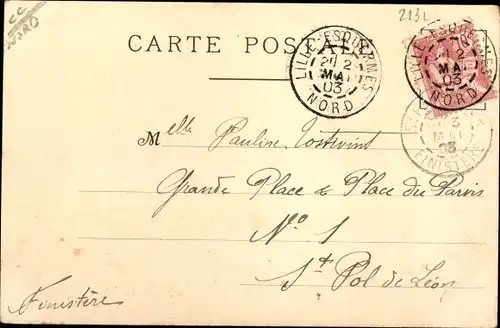 CC
NORD
213L
CARTE POSTALE
LILLE-ESQUERMES
2
MAI
03
NORD
LILLE-ESQUERMES
2
MAI
03
NORD
3
MAI
03
FINISTÈRE
Melle Pauline
Grande Place & Place du Parvis
No 1
St Pol de Léon
Finistère